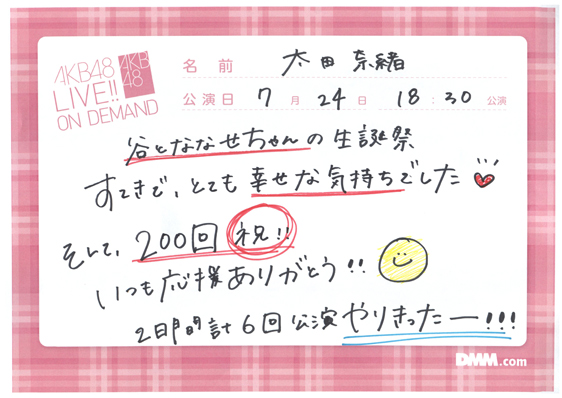 AKB48
LIVE!!
ON DEMAND
AKB
48
名前 太田 奈緒
公演日 7月24日 18:30公演
谷とななせちゃんの生誕祭
すてきで、とても幸せな気持ちでした
そして、200回 祝!!
いつも応援ありがとう!!
2日間計6回公演やりきったー!!!
DMM.com